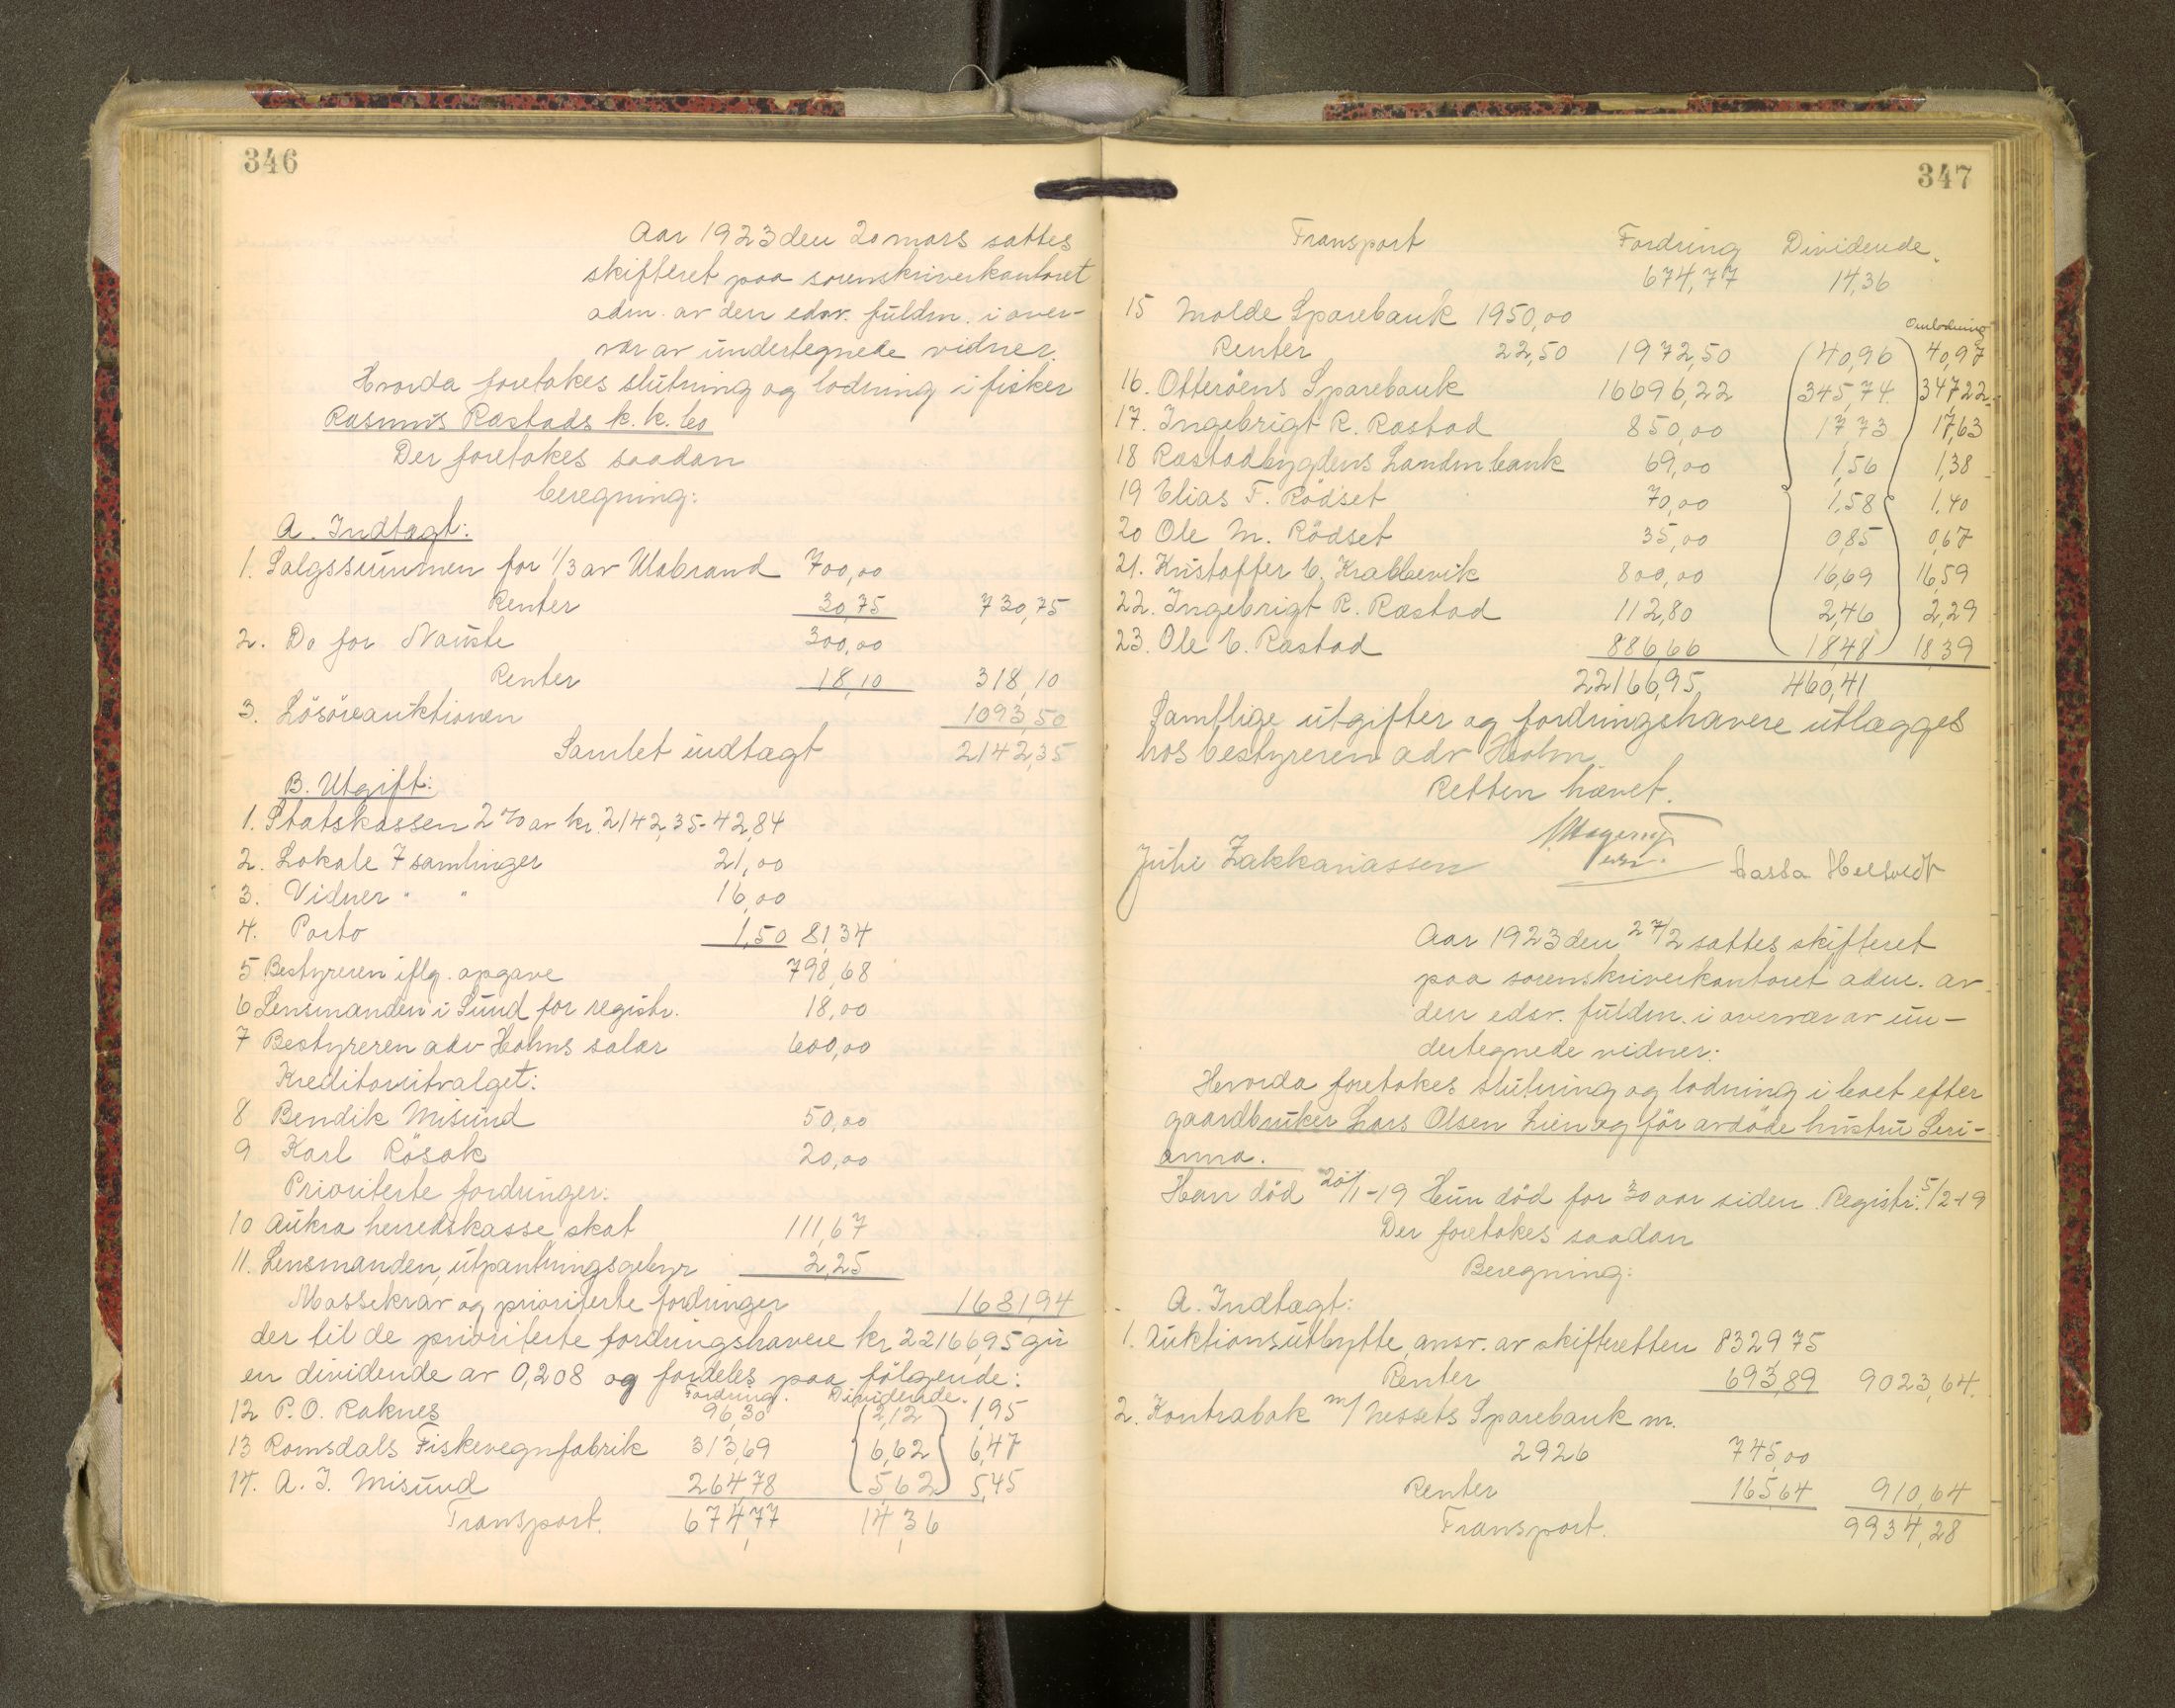 346
Aar 1923 den 20 mars sattes
skifteret paa sorenskriverkontoret
adm. av den edsv. fuldm. i over-
vær av undertegnede vidner.
Hvorda foretokes slutning og lodning i fisker
Rasmus Rastads k. k. bo
Der foretokes saadan
beregning:
A. Indtægt:
1. Salgssummen for 1/3 av Utabrand 700,00
Renter 30,75 730,75
2. Do for Nauste 300,00
Renter 18,10 318,10
3. Lösöreauktionen 1093,50
Samlet indtægt 2142,35
B. Utgift:
1. Statskassen 2 % av kr. 2142,35 - 42,84
2. Lokale 7 samlinger 21,00
3. Vidner " " 16,00
4. Porto 1,50 81,34
5 Bestyreren iflg. opgave 798,68
6 Lensmanden i Sund for registr. 18,00
7 Bestyreren adv Holms salær 600,00
Kreditorutvalget:
8 Bendik Misund 50,00
9 Karl Rösok 20,00
Prioriterte fordringer:
10 Aukra herredskasse skat 111,67
11. Lensmanden, utpantningsgebyr 2,25
Massekrav og prioriterte fordringer 1681,94
der til de prioriterte fordringshavere kr 22166,95 gir
en dividende av 0,208 og fordeles paa fölgende:
Fordring. Dividende.
12 P. O. Raknes 96,30 (2,12) 1,95
13 Romsdals Fiskevegnfabrik 313,69 (6,62) 6,47
14. A. J. Misund 264,78 (5,62) 5,45
Transport. 674,77 14,36
347
Transport Fordring Dividende.
674,77 14,36
15 Molde Sparebank 1950,00
Omlodning
Renter 22,50 1972,50 (40,96) 40,97
16. Otteröens Sparebank 16696,22 345,74 347,22
17. Ingebrigt R. Rastad 850,00 17,73 17,63
18 Rastadbygdens Landmbank 69,00 1,56 1,38
19 Elias F. Rödset 70,00 1,58 1,40
20 Ole M. Rödset 35,00 0,85 0,67
21. Kristoffer E. Krabbevik 800,00 16,69 16,59
22. Ingebrigt R. Rastad 112,80 2,46 2,29
23. Ole E. Rastad 886,66 18,48 18,39
22166,95 460,41
Samtlige utgifter og fordringshavere utlægges
hos bestyreren adv Holm.
Retten hævet.
Julie Zakkariassen
Aar 1923 den 27/2 sattes skifteret
paa sorenskriverkontoret adm. av
den edsv. fuldm. i overvær av un-
dertegnede vidner:
Hvorda foretokes slutning og lodning i boet efter
gaardbruker Lars Olsen Lien og för avdöde hustru Seri-
anna.
Han död 20/1-19 Hun död for 30 aar siden. Registr: 5/2-19
Der foretokes saadan
Beregning:
A. Indtægt:
1. Auktionsutbytte, ansv. av skifteretten 8329 75
Renter 693,89 9023,64.
2. Kontrabok m/ Nessets Sparebank m.
2926 745,00
Renter 165,64 910,64
Transport. 9934,28